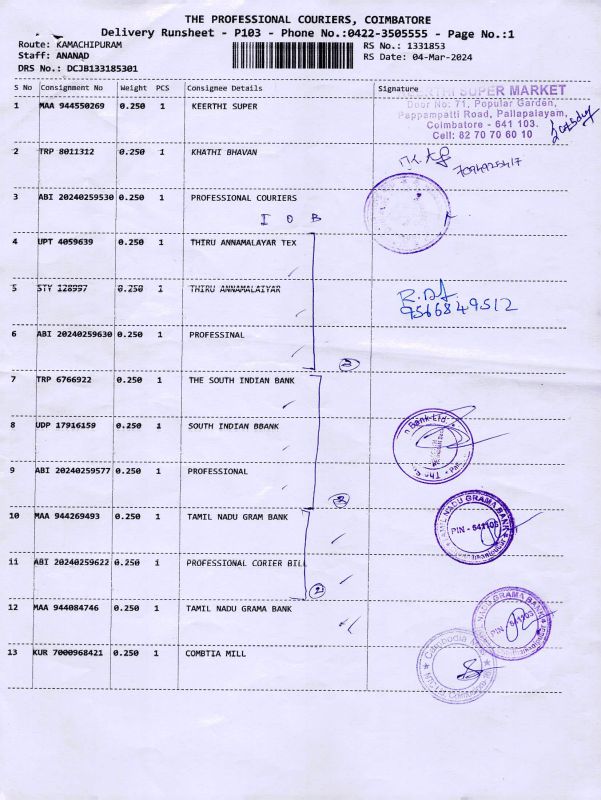 THE PROFESSIONAL COURIERS, COIMBATORE
Delivery Runsheet - P103 - Phone No.:0422-3505555 - Page No.:1
Route: KAMACHIPURAM
RS No.: 1331853
Staff: ANANAD
RS Date: 04-Mar-2024
DRS No.: DCJB133185301
S No Consignment No Weight PCS Consignee Details Signature
1 MAA 944550269 0.250 1 KEERTHI SUPER
KEERTHI SUPER MARKET
Door No: 71, Popular Garden,
Pappampatti Road, Pallapalayam,
Coimbatore - 641 103.
Cell: 82 70 70 60 10
2 TRP 8011312 0.250 1 KHATHI BHAVAN
3 ABI 20240259530 0.250 1 PROFESSIONAL COURIERS
I O B
4 UPT 4059639 0.250 1 THIRU ANNAMALAYAR TEX
5 STY 128997 0.250 1 THIRU ANNAMALAIYAR
9566849512
6 ABI 20240259630 0.250 1 PROFESSINAL
3
7 TRP 6766922 0.250 1 THE SOUTH INDIAN BANK
8 UDP 17916159 0.250 1 SOUTH INDIAN BBANK
n Bank Ltd
9 ABI 20240259577 0.250 1 PROFESSIONAL
10 MAA 944269493 0.250 1 TAMIL NADU GRAM BANK
TAMIL NADU GRAMA BANK
PIN - 641103
11 ABI 20240259622 0.250 1 PROFESSIONAL CORIER BILL
2
12 MAA 944084746 0.250 1 TAMIL NADU GRAMA BANK
NADU GRAMA BANK
PIN - 641103
13 KUR 7000968421 0.250 1 COMBTIA MILL
Cambodia Mills